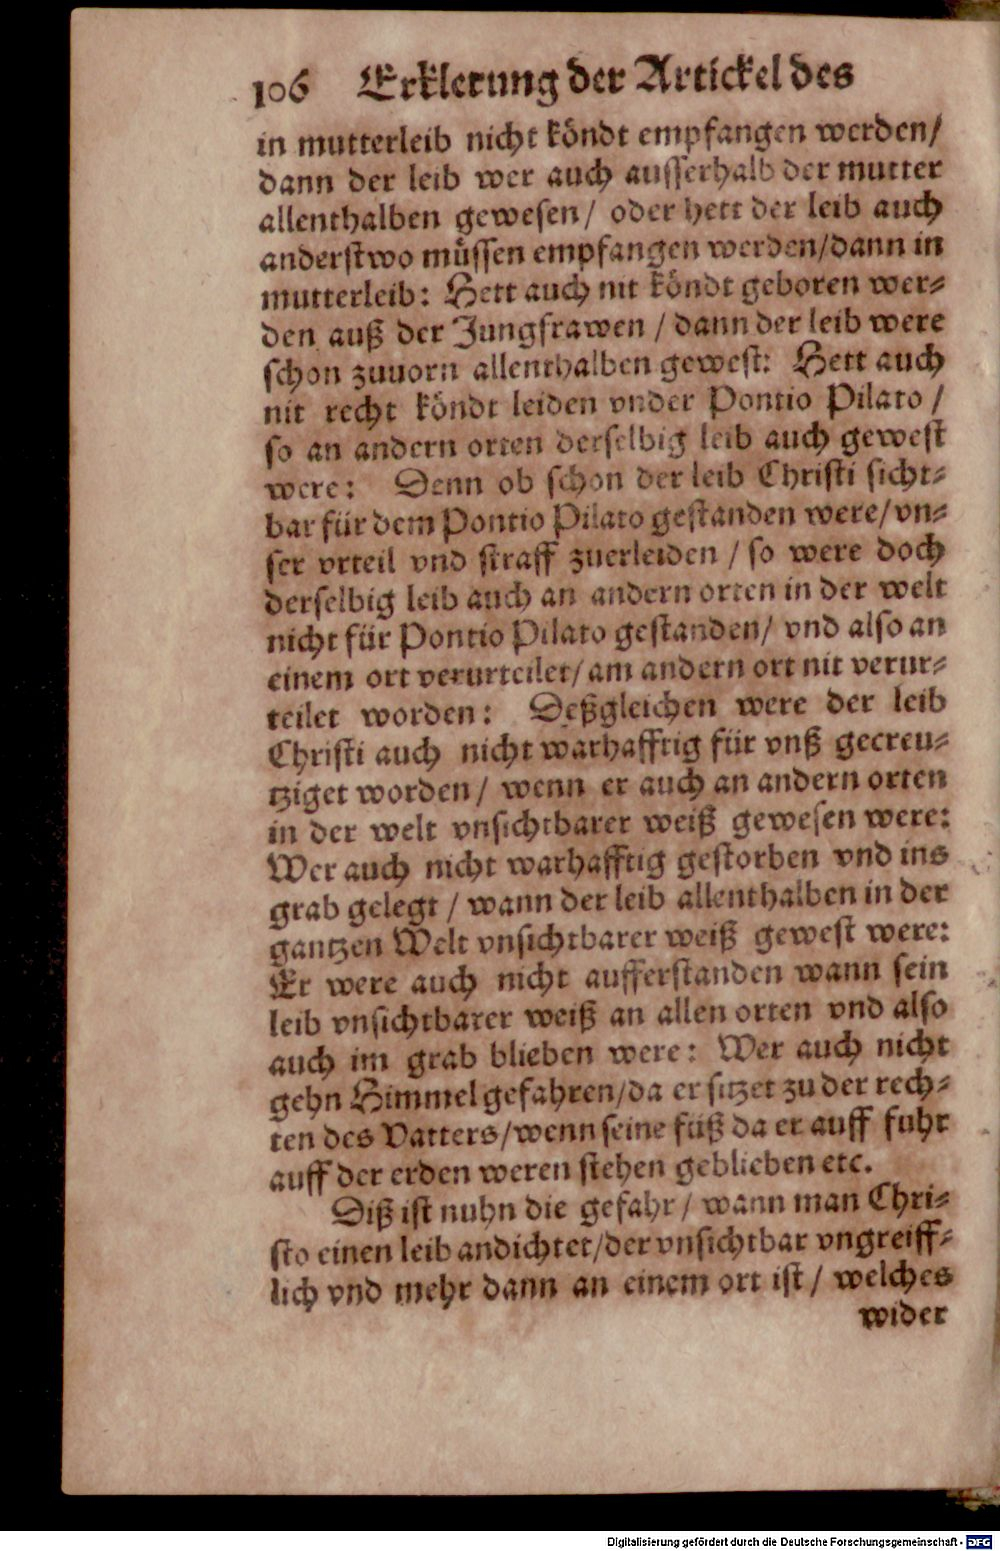 106 Erklerung der Artickel des
in mutterleib nicht köndt empfangen werden/
dann der leib wer auch ausserhalb der mutter
allenthalben gewesen/ oder hett der leib auch
anderstwo müssen empfangen werden/dann in
mutterleib: Hett auch nit köndt geboren wer-
den auß der Jungfrawen / dann der leib were
schon zuuorn allenthalben gewest: Hett auch
nit recht köndt leiden vnder Pontio Pilato /
so an andern orten derselbig leib auch gewest
were: Denn ob schon der leib Christi sicht-
bar für dem Pontio Pilato gestanden were/vn-
ser vrteil vnd straff zuerleiden / so were doch
derselbig leib auch an andern orten in der welt
nicht für Pontio Pilato gestanden/ vnd also an
einem ort verurteilet/am andern ort nit verur-
teilet worden: Deßgleichen were der leib
Christi auch nicht warhafftig für vnß gecreu-
tziget worden/ wenn er auch an andern orten
in der welt vnsichtbarer weiß gewesen were:
Wer auch nicht warhafftig gestorben vnd ins
grab gelegt / wann der leib allenthalben in der
gantzen Welt vnsichtbarer weiß gewest were:
Er were auch nicht aufferstanden wann sein
leib vnsichtbarer weiß an allen orten vnd also
auch im grab blieben were: Wer auch nicht
gehn Himmel gefahren/da er sitzet zu der rech-
ten des Vatters/wenn seine füß da er auff fuhr
auff der erden weren stehen geblieben etc.
Diß ist nuhn die gefahr / wann man Chri-
sto einen leib andichtet/der vnsichtbar vngreiff-
lich vnd mehr dann an einem ort ist / welches
wider
Digitalisierung gefördert durch die Deutsche Forschungsgemeinschaft - DFG